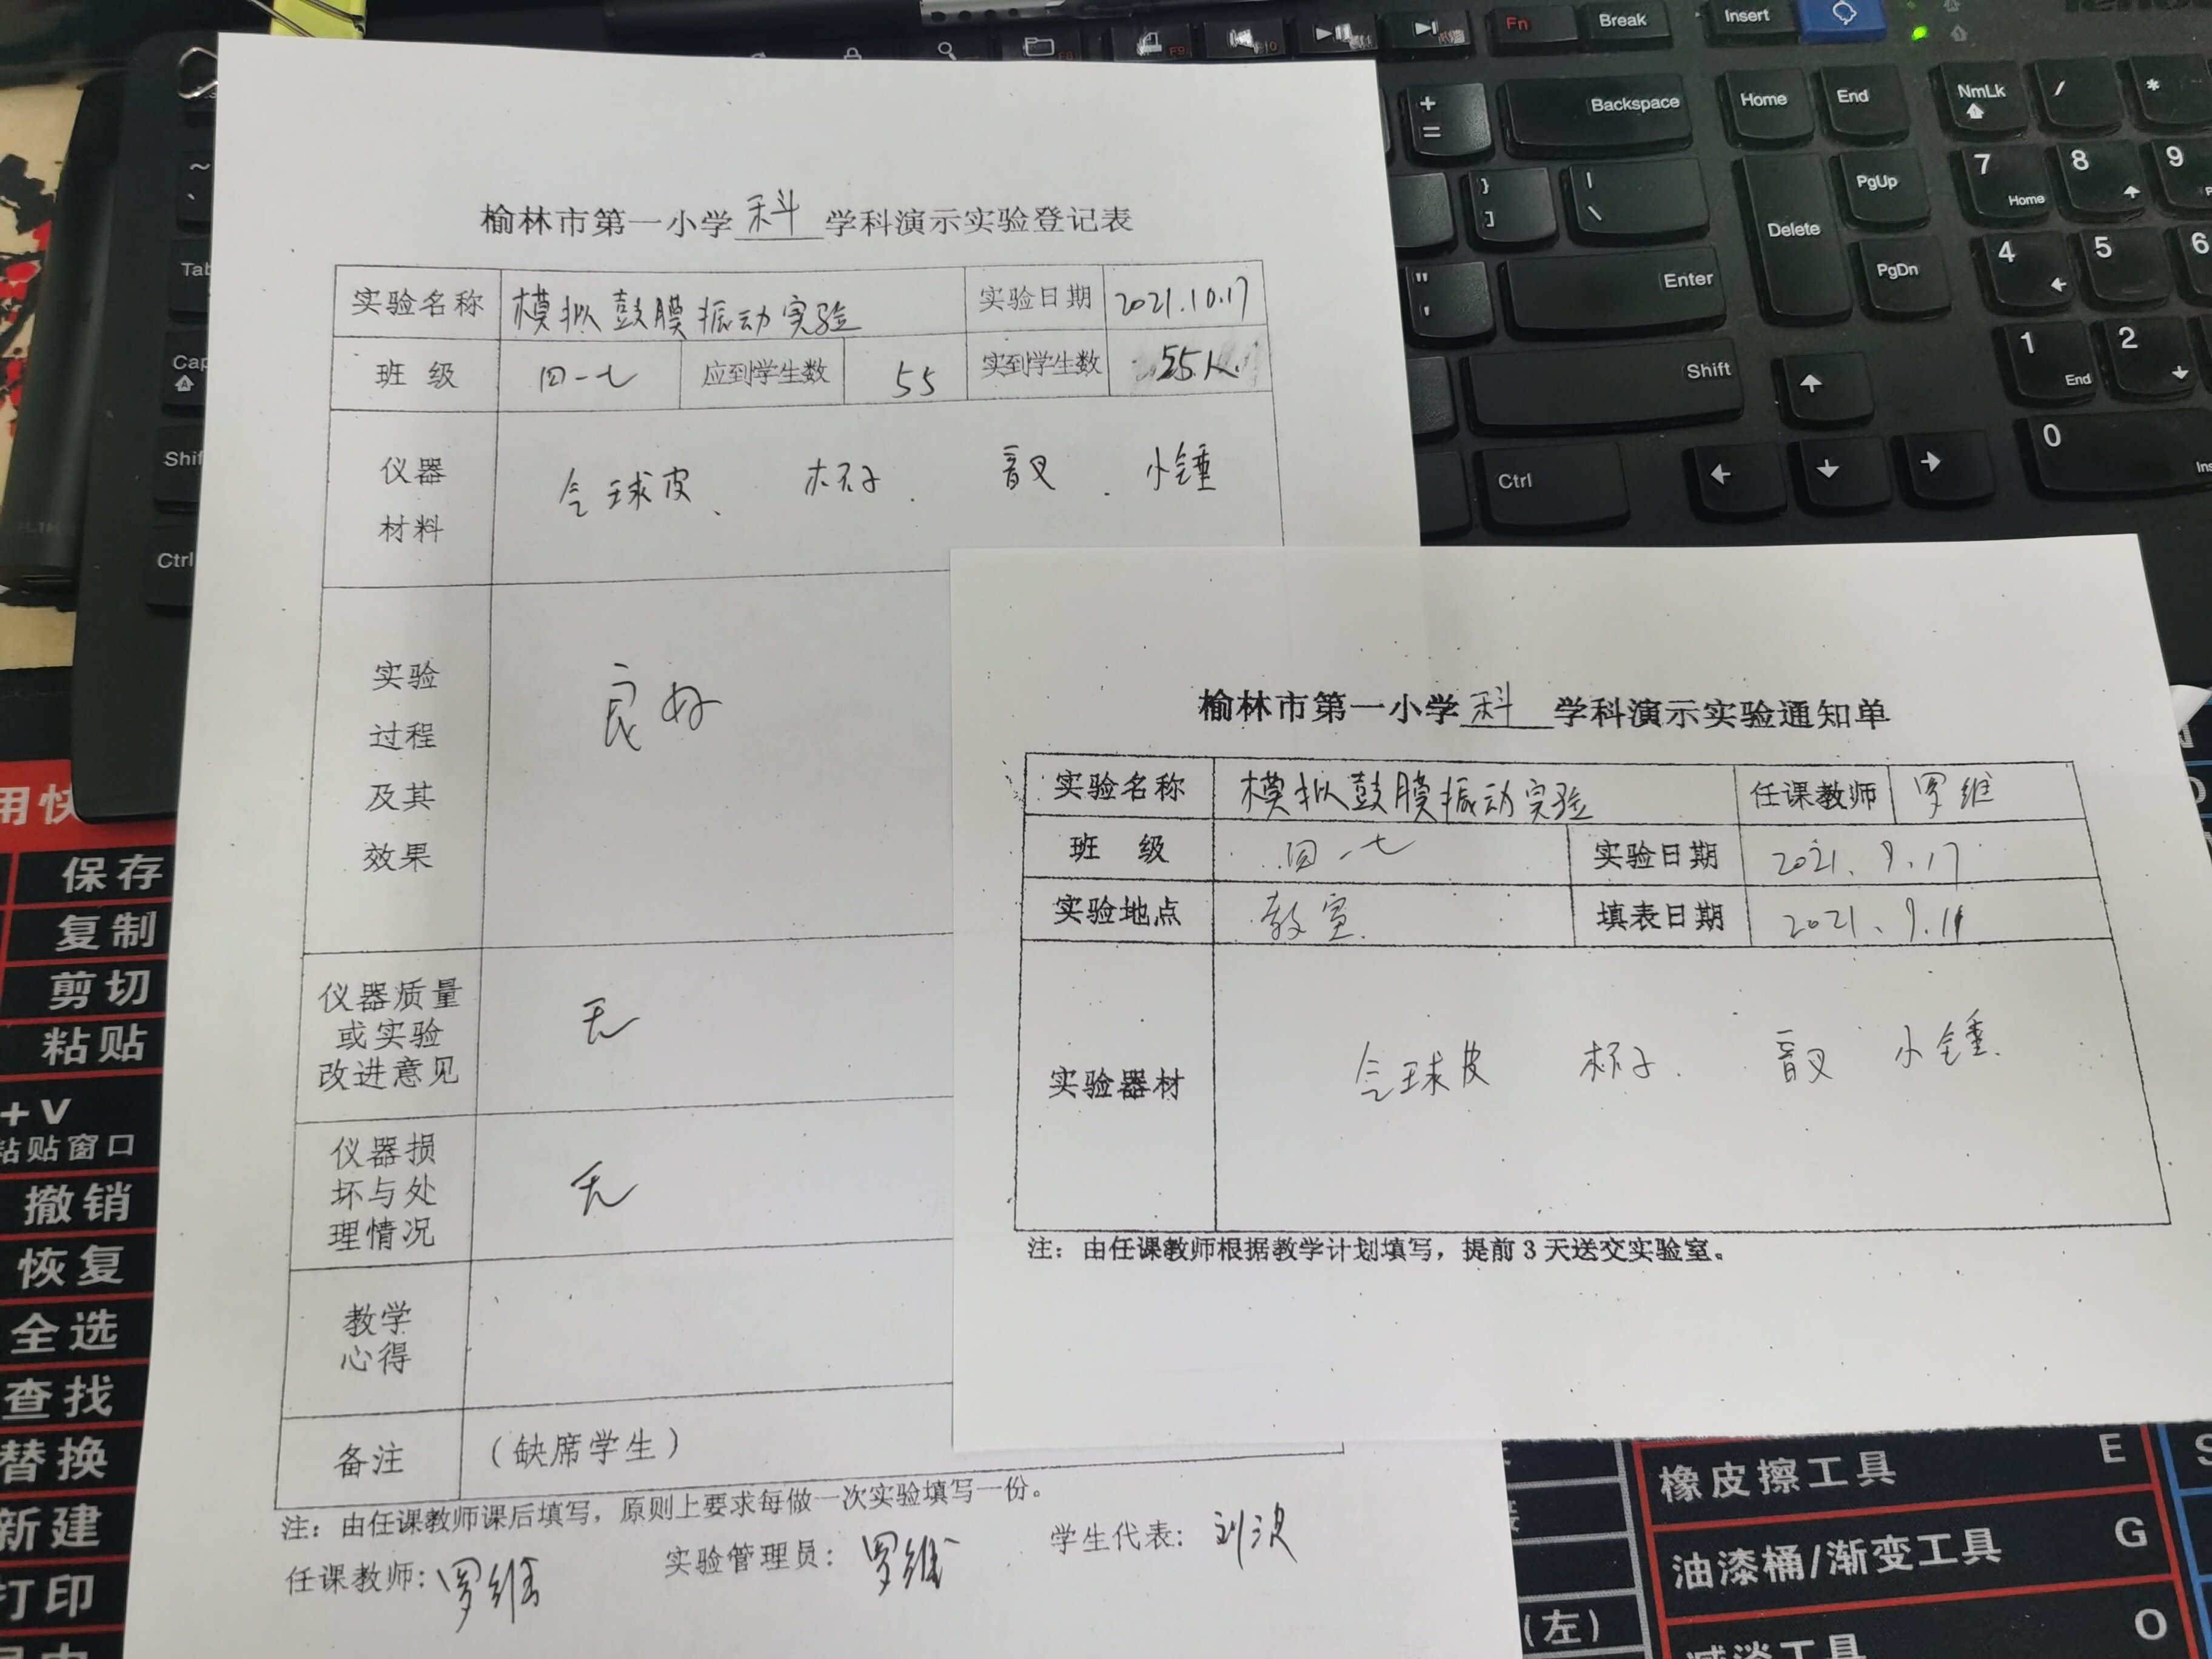 榆林市第一小学 科 学科演示实验登记表
实验名称 模拟鼓膜振动实验 实验日期 2021.10.17
班 级 四一七 应到学生数 55 实到学生数 55人.
仪器 气球皮、 杯子. 音叉. 小锤
材料
实验
过程 良好
及其
效果
仪器质量
或实验 无
改进意见
仪器损
坏与处 无
理情况
教学
心得
备注 (缺席学生)
注：由任课教师课后填写，原则上要求每做一次实验填写一份。
任课教师: 罗维 实验管理员: 罗维 学生代表: 刘波
榆林市第一小学 科 学科演示实验通知单
实验名称 模拟鼓膜振动实验 任课教师 罗维
班 级 四一七 实验日期 2021.9.17
实验地点 教室. 填表日期 2021.9.11
实验器材 气球皮 杯子. 音叉 小锤.
注：由任课教师根据教学计划填写，提前3天送交实验室。
Fn Break Insert
+ = Backspace Home End NmLk / *
} ] | \ Delete PgUp 7 Home 8 9
" ' Enter PgDn 4 5 6
Shift 1 End 2
Ctrl 0
~
Tab
Cap
Shif
Ctrl
用快
保存
复制
剪切
粘贴
+V
粘贴窗口
撤销
恢复
全选
查找
替换
新建
打印
橡皮擦工具 E
油漆桶/渐变工具 G
减淡工具 O
(左)